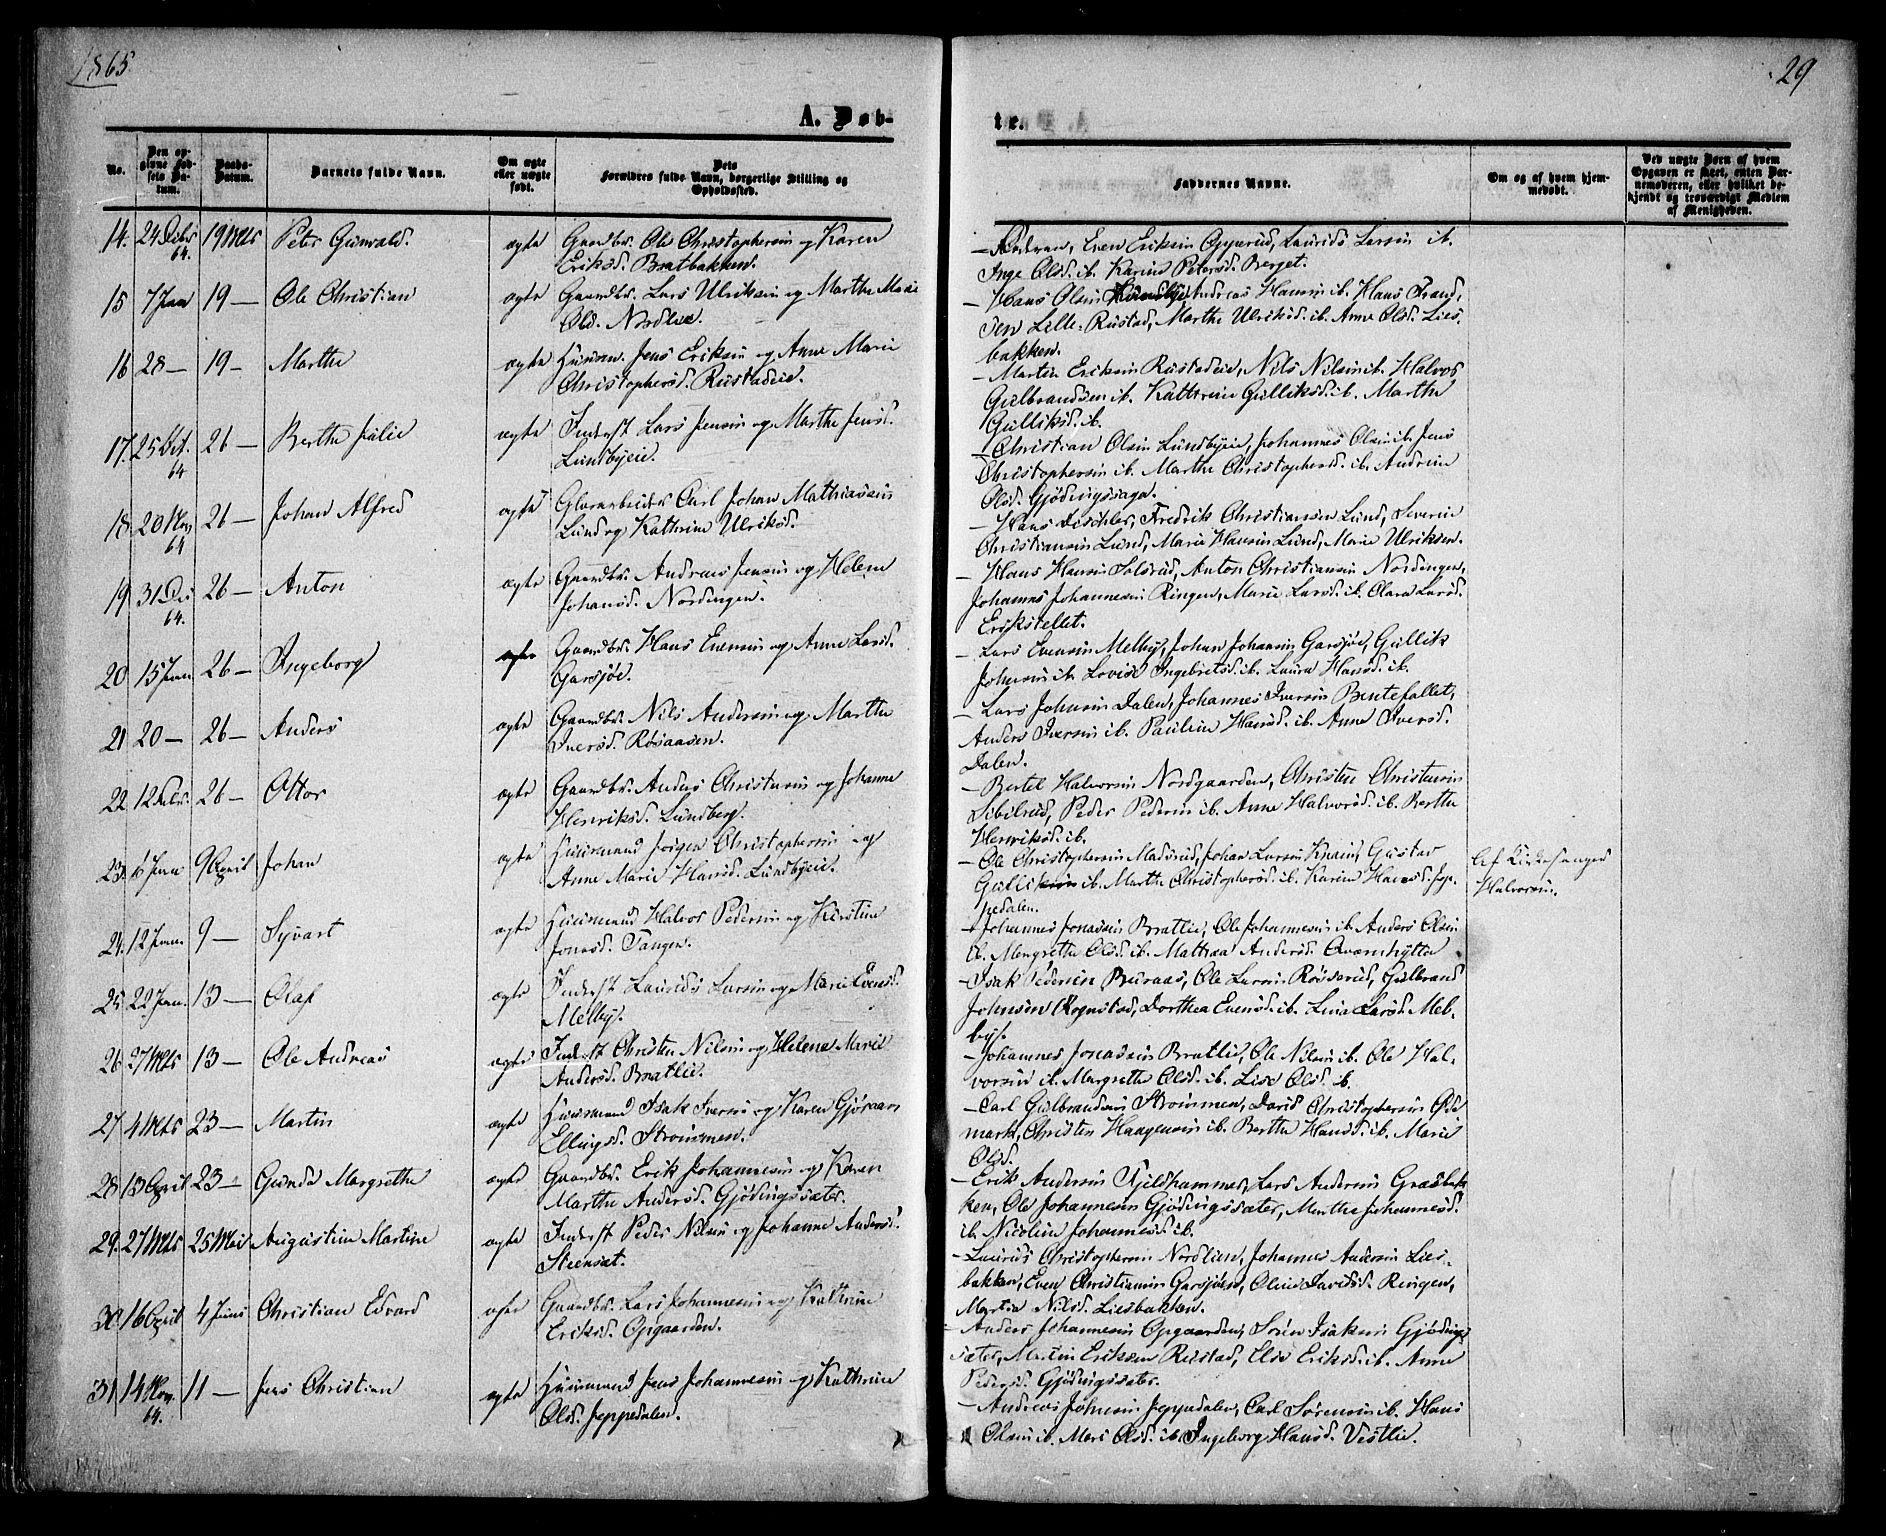 1865.
29
A. Døb-
te.
No.
Den op-
givne Fød-
sels Da-
tum.
Daabs-
Datum.
Barnets fulde Navn.
Om ægte
eller uægte
født.
Dets
Forældres fulde Navn, borgerlige Stilling og
Opholdssted.
Faddernes Navne.
Om og af hvem hjem-
medøbt.
Ved uægte Børn af hvem
Opgaven er skeet, enten Bar-
nemoderen, eller hvilket be-
kjendt og troværdigt Medlem
af Menigheden.
14. 24 Debr 64. 19 Mts Peter Gunvald. ægte Gaardbr. Ole Christophersen og Karen
Eriksd. Bratbakken.
Even Eriksen Opperud, Laurids Larsen ib.
Inge Olsd. ib. Karine Petersd. Berget.
15 7 Jan 19 — Ole Christian ægte Gaardbr. Lars Ulriksen og Marthe Marie
Olsd. Nordlie.
— Hans Olsen Andreas Hansen ib. Hans Frand-
sen Lille-Rustad, Marthe Ulriksd. ib. Anne Olsd. Lies-
bakken.
16 28 — 19 — Marthe ægte Huusm. Jens Eriksen og Anne Marie
Christophersd. Rustadeie.
— Martin Eriksen Rustadeie, Nils Nilsen ib. Halvor
Gulbrandsen ib. Kathrine Gulliksd. ib. Marthe
Gulliksd. ib.
17. 25 Oct. 64 26 — Berthe Julie ægte Inderst Lars Jensen og Marthe Jensd.
Lundbyeie.
— Christian Olsen Lundbyeie, Johannes Olsen ib. Jens
Christophersen ib. Marthe Christophersd. ib. Andrine
Olsd. Gjødingssaga.
18. 20 Nov 64 26 — Johan Alfred ægte Glasarbeider Carl Johan Mathiassen
Lund og Kathrine Ulriksd.
— Hans Discher, Fredrik Christiansen Lund, Severin
Christiansen Lund, Marie Hansen Lund, Marie Ulriksen.
19 31 Dec 64. 26 — Anton ægte Gaardbr. Andreas Jensen og Helene
Johansd. Nordengen.
— Hans Hansen Solsrud, Anton Christiansen Nordengen,
Johannes Johannesen Ringen, Marie Larsd. ib. Olava Larsd.
Erikstellet.
20 15 Jan 26 — Ingeborg ægte Gaardbr. Hans Evensen og Anne Larsd.
Garsjøe.
— Lars Evensen Melby, Johan Johansen Garsjøe, Gullik
Johnsen ib. Lovise Ingebretsd. ib. Laura Hansd. ib.
21 20 — 26 — Anders ægte Gaardbr. Nils Andersen og Marthe
Iversd. Røsaasen.
— Lars Johnsen Dalen, Johannes Iversen Bentefallet,
Anders Iversen ib. Pauline Hansd. ib. Anne Iversd.
Dalen.
22 12 Febr. 26 — Ottor ægte Gaardbr. Anders Christensen og Johanne
Henriksd. Lundberg.
— Bertel Halvorsen Nordgaarden, Christen Christensen
Sibilrud, Peder Pedersen ib. Anne Halvorsd. ib. Berthe
Henriksd. ib.
23. 6 Jan 9 April Johan ægte Huusmand Jørgen Christophersen og
Anne Marie Hansd. Lundbyeie.
— Ole Christophersen Madsrud, Johan Larsen Knain, Gustav
Gulliksen ib. Marthe Christophersd. ib. Karine Hansd. Jep-
pedalen.
Af Kirkesanger
Halvorsen.
24. 12 Jan. 9 — Syvart ægte Huusmand Halvor Pedersen og Kirstine
Jonasd. Tangen.
— Johannes Jonassen Bratlie, Ole Johannesen ib. Anders Olsen
ib. Mergrethe Olsd. ib. Mathea Andersd. Qvernhytta
25. 22 Jan. 13 — Olaf ægte Inderst Laurids Larsen og Marie Evensd.
Melby.
— Isak Pedersen Buraas, Ole Larsen Røiserud, Gulbrand
Johnsen Rognstad, Dorthea Evensd. ib. Lina Larsd. Mel-
by.
26. 27 Mts 13 — Ole Andreas ægte Inderst Christen Nilsen og Helene Marie
Andersd. Bratlie.
— Johannes Jonassen Bratlie, Ole Nilsen ib. Ole Hal-
vorsen ib. Margrethe Olsd. ib. Lise Olsd. ib.
27 4 Mts 23 — Martin ægte Huusmand Isak Iversen og Karen
Ellingsd. Strømmen.
— Carl Gulbrandsen Strømmen, David Christophersen Øde-
mark, Christen Haagensen ib. Berthe Hansd. ib. Marie
Olsd.
28 13 April 23 — Gunda Margrethe ægte Gaardbr. Erik Johannesen og Karen
Marthe Andersd. Gjødingssæter.
— Erik Andersen Kjeldhammer, Lars Andersen Græsbak-
ken, Ole Johannesen Gjødingssæter, Marthe Johannesd.
ib. Nicoline Johannesd. ib.
29. 27 Mts 25 Mai Augustine Martine ægte Inderst Peder Nilsen og Johanne Andersd.
Steensæt.
— Laurids Christophersen Nordlien, Johannes Andersen Lies-
bakken, Even Christiansen Garsjøen, Oline Davidsd. Ringen,
Martia Nilsd. Liesbakken.
30. 16 April 4 Juni Christian Edvard ægte Gaardbr. Lars Johannesen og Kathrine
Eriksd. Opgaarden.
— Anders Johannesen Opgaarden, Søren Isaksen Gjødings-
sæter, Martin Eriksen Rustad, Else Eriksd. ib. Anne
Pedersd. Gjødingssæter.
31. 14 Nov. 64. 11 — Jens Christian ægte Huusmand Jens Johannesen og Kathrine
Olsd. Jeppedalen.
— Andreas Johnsen Jeppedalen, Carl Sørensen ib. Hans
Olsen ib. Mari Olsd. ib. Ingeborg Hansd. Vestlie.